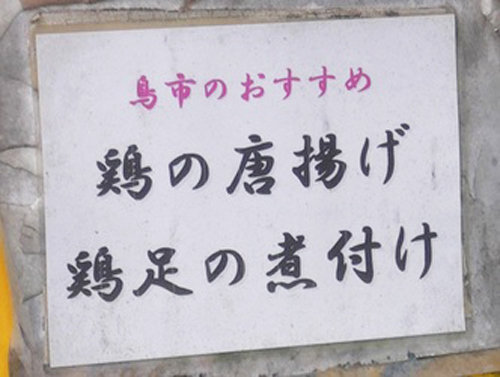 鳥市のおすすめ
鶏の唐揚げ
鶏足の煮付け